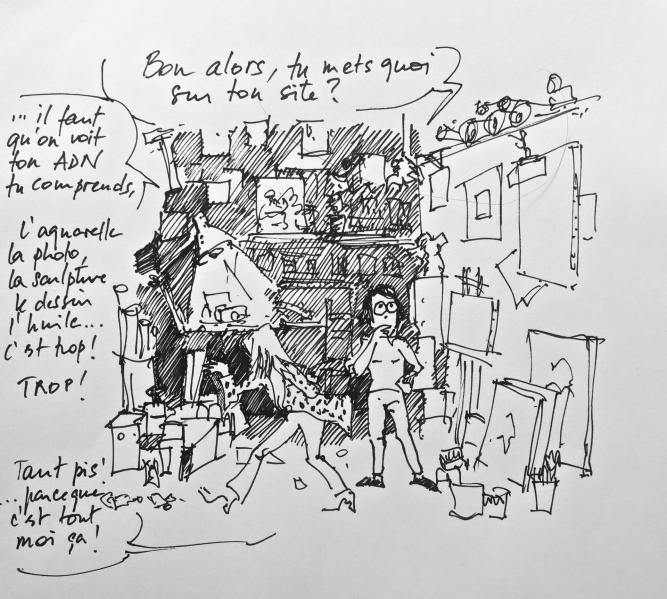 Bon alors, tu mets quoi
sur ton site?
... il faut
qu'on voit
ton ADN
tu comprends,
l'aquarelle
la photo,
la sculpture
le dessin
l'huile...
c'est trop!
TROP!
Tant pis!
... parceque
c'est tout
moi ça!